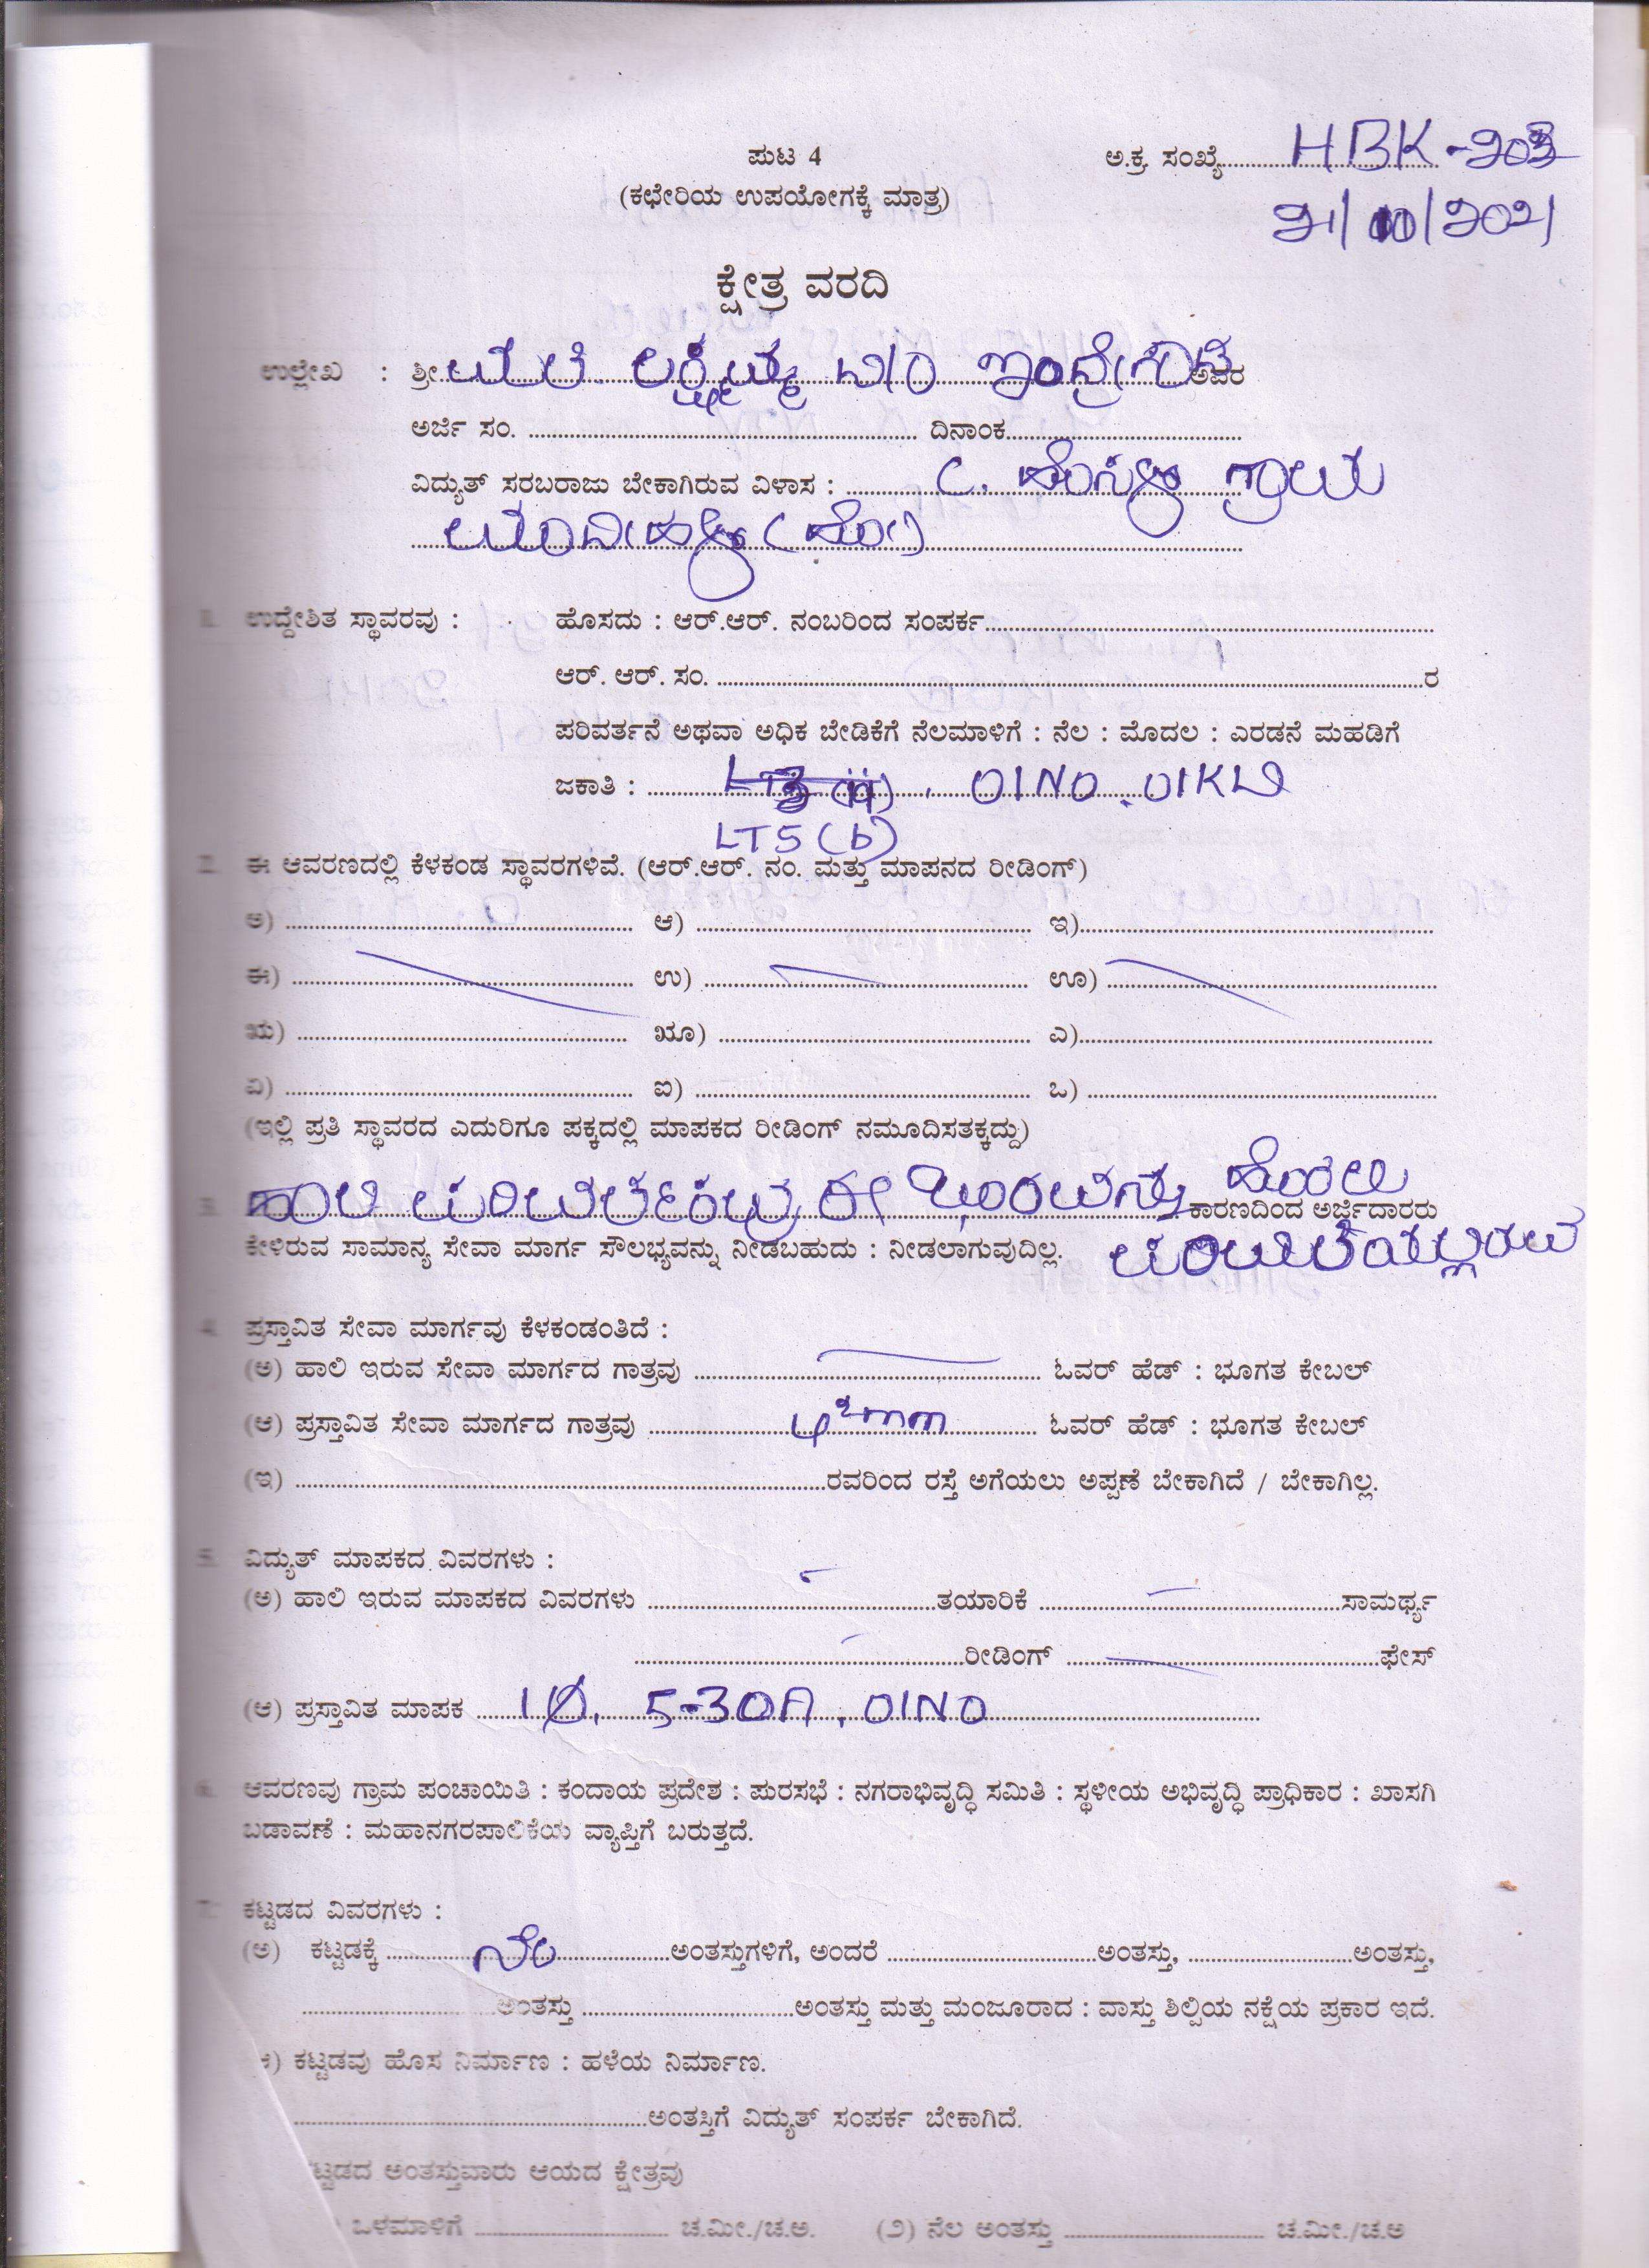 ಪುಟ 4
ಅ.ಕ್ರ. ಸಂಖ್ಯೆ HBK - ೨೦೩
(ಕಛೇರಿಯ ಉಪಯೋಗಕ್ಕೆ ಮಾತ್ರ)
೨೧/10/೨೦೨೧
ಕ್ಷೇತ್ರ ವರದಿ
ಉಲ್ಲೇಖ : ಶ್ರೀ ಮತಿ. ಲಕ್ಷ್ಮಮ್ಮ W/O ಇಂದ್ರೇಗೌಡ ಅವರ
ಅರ್ಜಿ ಸಂ. ದಿನಾಂಕ
ವಿದ್ಯುತ್ ಸರಬರಾಜು ಬೇಕಾಗಿರುವ ವಿಳಾಸ : C. ಹೊಸಳ್ಳಿ ಗ್ರಾಮ
(ಹೋ)
1. ಉದ್ದೇಶಿತ ಸ್ಥಾವರವು : ಹೊಸದು : ಆರ್.ಆರ್. ನಂಬರಿಂದ ಸಂಪರ್ಕ
ಆರ್. ಆರ್. ಸಂ. ರ
ಪರಿವರ್ತನೆ ಅಥವಾ ಅಧಿಕ ಬೇಡಿಕೆಗೆ ನೆಲಮಾಳಿಗೆ : ನೆಲ : ಮೊದಲ : ಎರಡನೆ ಮಹಡಿಗೆ
ಜಕಾತಿ : 01NO. 01KW
LT5 (b)
2. ಈ ಆವರಣದಲ್ಲಿ ಕೆಳಕಂಡ ಸ್ಥಾವರಗಳಿವೆ. (ಆರ್.ಆರ್. ನಂ. ಮತ್ತು ಮಾಪನದ ರೀಡಿಂಗ್)
ಅ) ಆ) ಇ)
ಈ) ಉ) ಊ)
ಋ) ೠ) ಎ)
ಏ) ಐ) ಒ)
(ಇಲ್ಲಿ ಪ್ರತಿ ಸ್ಥಾವರದ ಎದುರಿಗೂ ಪಕ್ಕದಲ್ಲಿ ಮಾಪಕದ ರೀಡಿಂಗ್ ನಮೂದಿಸತಕ್ಕದ್ದು)
3. ಹಾಲಿ ಪರಿವರ್ತಕವು ಈ ಭಾರವನ್ನು ಹೊರಲು ಕಾರಣದಿಂದ ಅರ್ಜಿದಾರರು
ಕೇಳಿರುವ ಸಾಮಾನ್ಯ ಸೇವಾ ಮಾರ್ಗ ಸೌಲಭ್ಯವನ್ನು ನೀಡಬಹುದು : ನೀಡಲಾಗುವುದಿಲ್ಲ.
4. ಪ್ರಸ್ತಾವಿತ ಸೇವಾ ಮಾರ್ಗವು ಕೆಳಕಂಡಂತಿದೆ :
(ಅ) ಹಾಲಿ ಇರುವ ಸೇವಾ ಮಾರ್ಗದ ಗಾತ್ರವು ಓವರ್ ಹೆಡ್ : ಭೂಗತ ಕೇಬಲ್
(ಆ) ಪ್ರಸ್ತಾವಿತ ಸೇವಾ ಮಾರ್ಗದ ಗಾತ್ರವು 4²mm ಓವರ್ ಹೆಡ್ : ಭೂಗತ ಕೇಬಲ್
(ಇ) ರವರಿಂದ ರಸ್ತೆ ಅಗೆಯಲು ಅಪ್ಪಣೆ ಬೇಕಾಗಿದೆ / ಬೇಕಾಗಿಲ್ಲ.
5. ವಿದ್ಯುತ್ ಮಾಪಕದ ವಿವರಗಳು :
(ಅ) ಹಾಲಿ ಇರುವ ಮಾಪಕದ ವಿವರಗಳು ತಯಾರಿಕೆ ಸಾಮರ್ಥ್ಯ
ರೀಡಿಂಗ್ ಫೇಸ್
(ಆ) ಪ್ರಸ್ತಾವಿತ ಮಾಪಕ 1Ø, 5-30A, 01NO
6. ಆವರಣವು ಗ್ರಾಮ ಪಂಚಾಯಿತಿ : ಕಂದಾಯ ಪ್ರದೇಶ : ಪುರಸಭೆ : ನಗರಾಭಿವೃದ್ಧಿ ಸಮಿತಿ : ಸ್ಥಳೀಯ ಅಭಿವೃದ್ಧಿ ಪ್ರಾಧಿಕಾರ : ಖಾಸಗಿ
ಬಡಾವಣೆ : ಮಹಾನಗರಪಾಲಿಕೆಯ ವ್ಯಾಪ್ತಿಗೆ ಬರುತ್ತದೆ.
7. ಕಟ್ಟಡದ ವಿವರಗಳು :
(ಅ) ಕಟ್ಟಡಕ್ಕೆ ನೆಲ ಅಂತಸ್ತುಗಳಿಗೆ, ಅಂದರೆ ಅಂತಸ್ತು, ಅಂತಸ್ತು,
ಅಂತಸ್ತು ಅಂತಸ್ತು ಮತ್ತು ಮಂಜೂರಾದ : ವಾಸ್ತು ಶಿಲ್ಪಿಯ ನಕ್ಷೆಯ ಪ್ರಕಾರ ಇದೆ.
ಕಟ್ಟಡವು ಹೊಸ ನಿರ್ಮಾಣ : ಹಳೆಯ ನಿರ್ಮಾಣ.
ಅಂತಸ್ತಿಗೆ ವಿದ್ಯುತ್ ಸಂಪರ್ಕ ಬೇಕಾಗಿದೆ.
ಟ್ಟಡದ ಅಂತಸ್ತುವಾರು ಆಯದ ಕ್ಷೇತ್ರವು
ಒಳಮಾಳಿಗೆ ಚ.ಮೀ./ಚ.ಅ. (೨) ನೆಲ ಅಂತಸ್ತು ಚ.ಮೀ./ಚ.ಅ